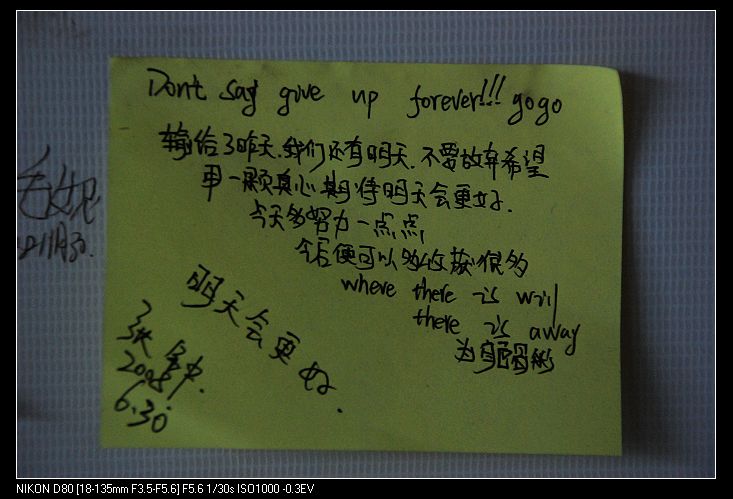 Dont say give up forever!!! gogo
输给了昨天.我们还有明天.不要放弃希望
用一颗真心期待明天会更好.
今天多努力一点点
今后便可以多收获很多
where there is will
there is away
为自己喝彩
明天会更好.
2008
6.30
NIKON D80 [18-135mm F3.5-F5.6] F5.6 1/30s ISO1000 -0.3EV